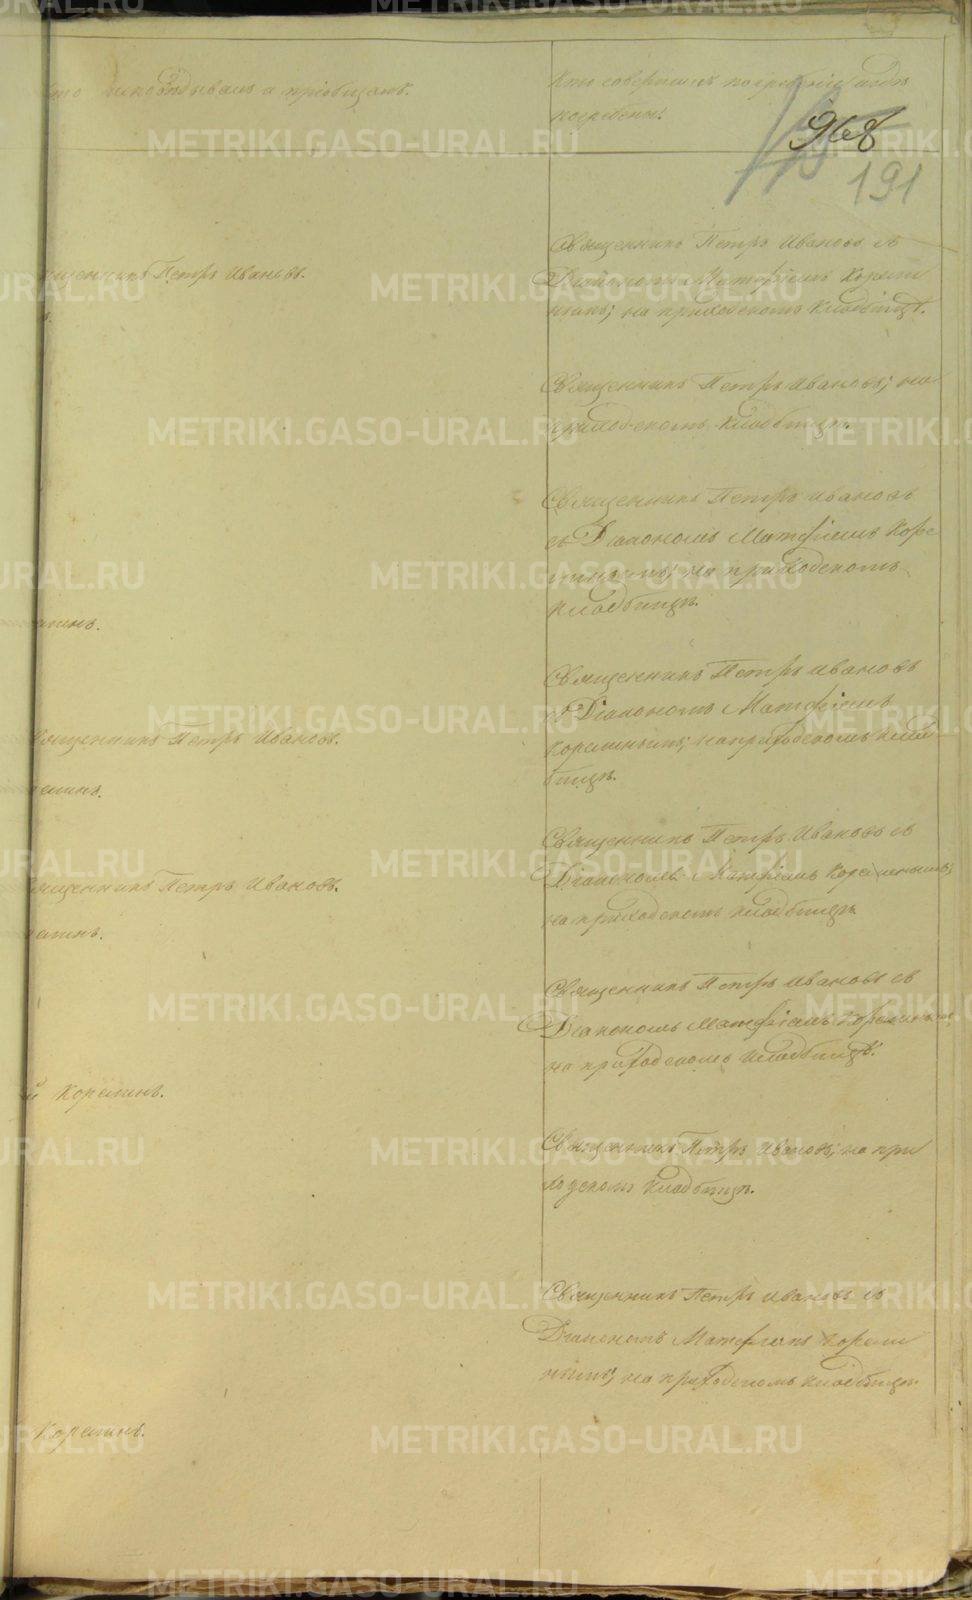 Кто исповѣдывалъ и пріобщалъ.
Кто совершилъ погребеніе и гдѣ
погребены.
968
191
Священникъ Петръ Ивановъ.
Священникъ Петръ Ивановъ съ
Діакономъ Матфіемъ Корели
нымъ; на приходскомъ кладбищѣ.
Священникъ Петръ Ивановъ; на
приходскомъ кладбищѣ.
Священникъ Петръ Ивановъ
съ Діакономъ Матфіемъ Коре
на приходскомъ
кладбищѣ.
Священникъ Петръ Ивановъ
съ Діакономъ Матфіемъ
на приходскомъ клад
бищѣ.
Священникъ Петръ Ивановъ.
Священникъ Петръ Ивановъ съ
Діакономъ Матфіемъ
на приходскомъ кладбищѣ.
Священникъ Петръ Ивановъ.
Священникъ Петръ Ивановъ съ
Діакономъ Матфіемъ
на приходскомъ кладбищѣ.
й Корелинъ.
Священникъ Петръ Ивановъ; на при
ходскомъ кладбищѣ.
Священникъ Петръ Ивановъ съ
Діакономъ Матфіемъ Корели
нымъ; на приходскомъ кладбищѣ.
Корелинъ.
METRIKI.GASO-URAL.RU